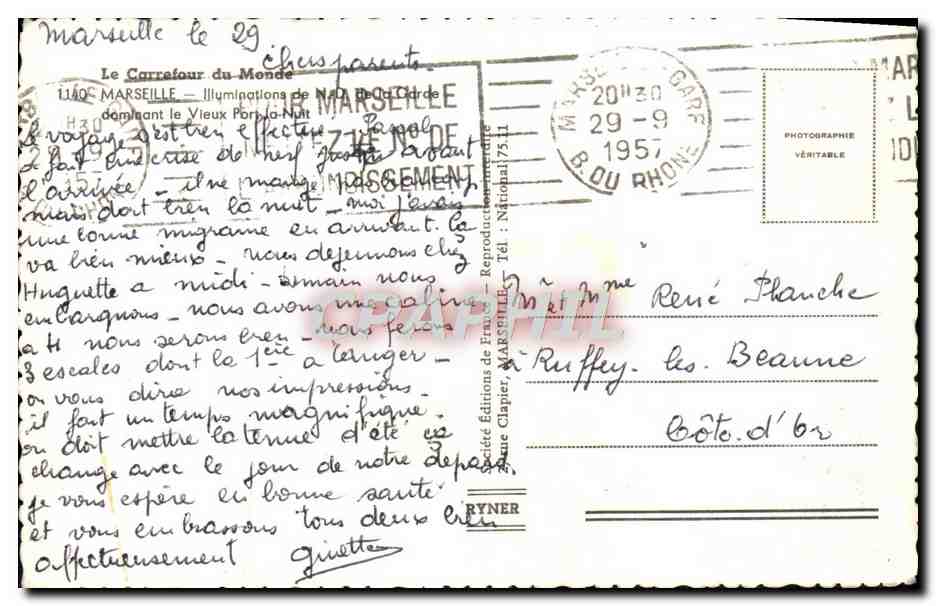 Marseille le 29
chers parents.
Le Carrefour du Monde
1140 - MARSEILLE - Illuminations de N.-D. de la Garde
dominant le Vieux Port la Nuit
le voyage s'est bien effectué. Pascal
a fait une crise de nerf juste avant
l'arrivée - il ne mange pas
mais dort bien la nuit - moi j'avais
une bonne migraine en arrivant. ça
va bien mieux - nous déjeunons chez
Huguette a midi - demain nous
embarquons - nous avons une cabine
a 4 nous serons bien - nous ferons
3 escales dont la 1ère a
on vous dira nos impressions
il fait un temps magnifique.
on doit mettre la tenue d'été ça
change avec le jour de notre départ.
je vous espère en bonne santé
et vous embrassons tous deux bien
affectueusement Ginette
MARSEILLE
N° DE
MARSEILLE GARE
20H30
29-9
1957
B. DU RHONE
PHOTOGRAPHIE
VÉRITABLE
Société Éditions de France - Reproduction interdite
rue Clapier, MARSEILLE - Tél. : National 75.11
CPAPHIL
Mr et Mme René Planche
à Ruffey-les-Beaune
Côte d'Or
RYNER